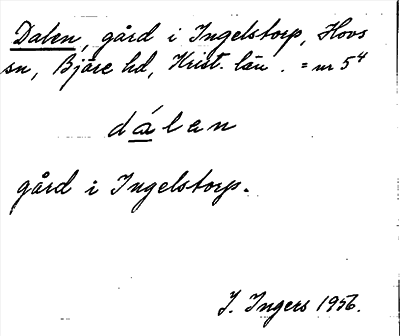 Dalen, gård i Ingelstorp, Hovs
sn, Bjäre hd, Krist. län. = nr 5⁴
dálan
gård i Ingelstorp.
I. Ingers 1956.